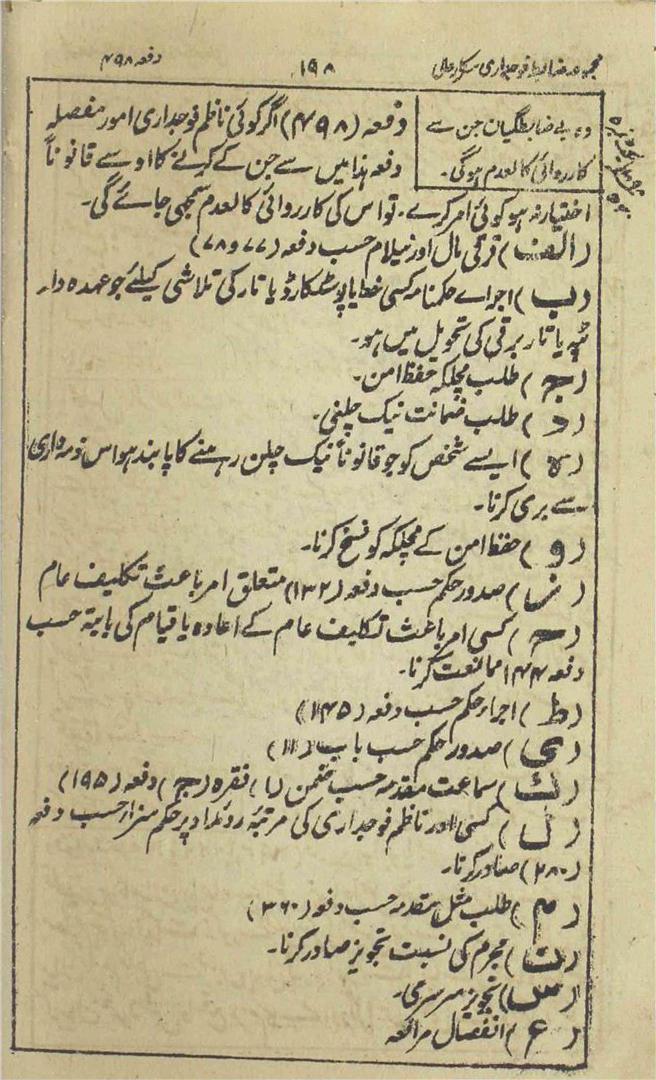 مجموعہ ضابطہ فوجداری سرکار عالی
۱۹۸
دفعہ ۴۹۸
وہ بے ضابطگیان جن سے
کارروائی کالعدم ہوگی۔
دفعہ (۴۹۸) اگر کوئی ناظم فوجداری امور مفصلہ
دفعہ ہذا میں سے جن کے کرنے کا اوسے قانوناً
اختیار نہ ہو کوئی امر کرے۔ تو اس کی کارروائی کالعدم سمجھی جائے گی۔
(الف) قرقی مال اور نیلام حسب دفعہ (۷۷ و ۷۸)
(ب) اجراے حکمنامہ کسی خط یا پوسٹکارڈ یا تار کی تلاشی کیلئے جو عہدہ دار
ٹپہ یا تار برقی کی تحویل میں ہو۔
(ج) طلب مچلکہ حفظ امن۔
(د) طلب ضمانت نیک چلنی۔
(ہ) ایسے شخص کو جو قانوناً نیک چلن رہنے کا پابند ہو اس ذمہ داری
سے بری کرنا۔
(و) حفظ امن کے مچلکہ کو نسخ کرنا۔
(ز) صدور حکم حسب دفعہ (۱۳۲) متعلق امر باعث تکلیف عام
(ح) کسی امر باعث تکلیف عام کے اعادہ یا قیام کی بابتہ حسب
دفعہ ۱۴۴ ممانعت کرنا۔
(ط) اجراء حکم حسب دفعہ (۱۴۵)
(ی) صدور حکم حسب باب (۱۱)
(ک) سماعت مقدمہ حسب ضمن (۱) فقرہ (ج) دفعہ (۱۹۵)
(ل) کسی اور ناظم فوجداری کی مرتبۂ روئداد پر حکم سزا حسب دفعہ
(۲۸۰) صادر کرنا۔
(م) طلب مثل مقدمہ حسب دفعہ (۳۶۰)
(ن) مجرم کی نسبت تجویز صادر کرنا۔
(س) تجویز سرسری۔
(ع) انفصال مرافعہ